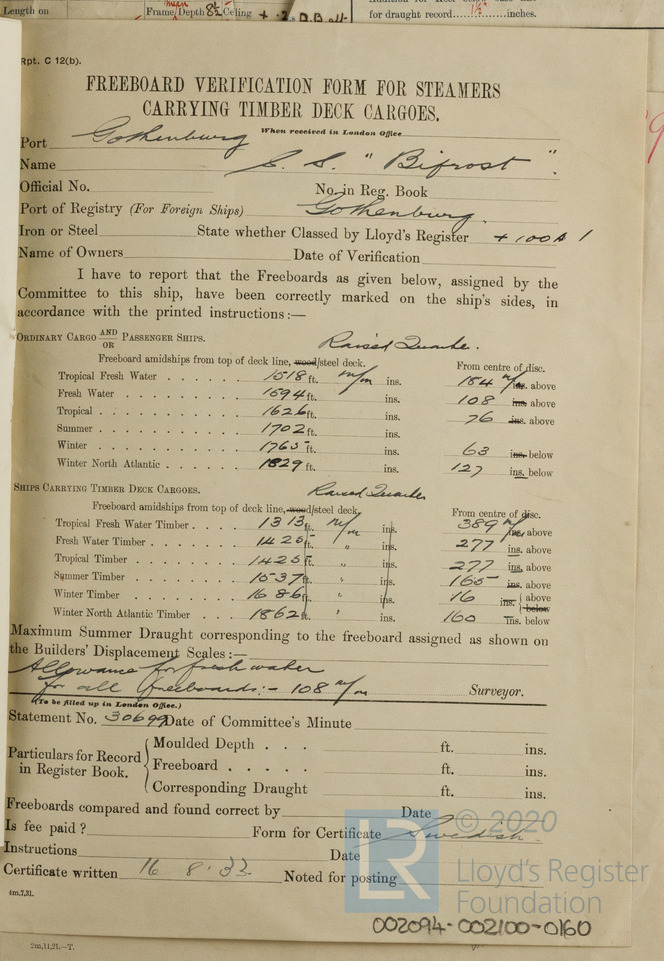 Length on Frame Depth 8½ Ceiling
for draught record 1½ inches.
Rpt. C 12(b).
FREEBOARD VERIFICATION FORM FOR STEAMERS
CARRYING TIMBER DECK CARGOES.
When received in London Office
Port Gothenburg
Name S. S. "Bifrost".
Official No. No. in Reg. Book
Port of Registry (For Foreign Ships) Gothenburg.
Iron or Steel State whether Classed by Lloyd's Register +100A1
Name of Owners Date of Verification
I have to report that the Freeboards as given below, assigned by the
Committee to this ship, have been correctly marked on the ship's sides, in
accordance with the printed instructions :—
ORDINARY CARGO AND OR PASSENGER SHIPS. Raised Quarter.
Freeboard amidships from top of deck line, wood/steel deck. From centre of disc.
Tropical Fresh Water 1518 ft. m/m ins. 184 m/m ins. above
Fresh Water 1594 ft. ins. 108 ins. above
Tropical 1626 ft. ins. 76 ins. above
Summer 1702 ft. ins.
Winter 1765 ft. ins. 63 ins. below
Winter North Atlantic 1829 ft. ins. 127 ins. below
SHIPS CARRYING TIMBER DECK CARGOES. Raised Quarter
Freeboard amidships from top of deck line, wood/steel deck. From centre of disc.
Tropical Fresh Water Timber 1313 ft. m/m ins. 389 m/m ins. above
Fresh Water Timber 1425 ft. " ins. 277 ins. above
Tropical Timber 1425 ft. " ins. 277 ins. above
Summer Timber 1537 ft. " ins. 165 ins. above
Winter Timber 1686 ft. " ins. 16 ins. above below
Winter North Atlantic Timber 1862 ft. " ins. 160 ins. below
Maximum Summer Draught corresponding to the freeboard assigned as shown on
the Builders' Displacement Scales :—
Allowance for fresh water
for all freeboards :- 108 m/m Surveyor.
(To be filled up in London Office.)
Statement No. 30699 Date of Committee's Minute
Particulars for Record in Register Book.
Moulded Depth ft. ins.
Freeboard ft. ins.
Corresponding Draught ft. ins.
Freeboards compared and found correct by Date
Is fee paid ? Form for Certificate Swedish.
Instructions Date
Certificate written 16 8.33 Noted for posting
4m,7,31.
© 2020
LR
Lloyd's Register
Foundation
002094-002100-0160
2m,11,21.—T.